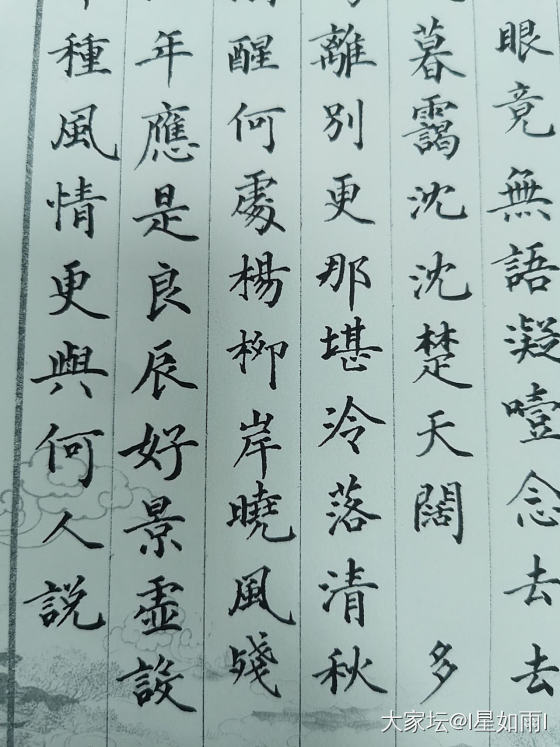 眼竟無語凝噎念去去
暮靄沈沈楚天闊 多
離別更那堪冷落清秋
醒何處楊柳岸曉風殘
年應是良辰好景虛設
種風情更與何人說
大家坛@I星如雨I